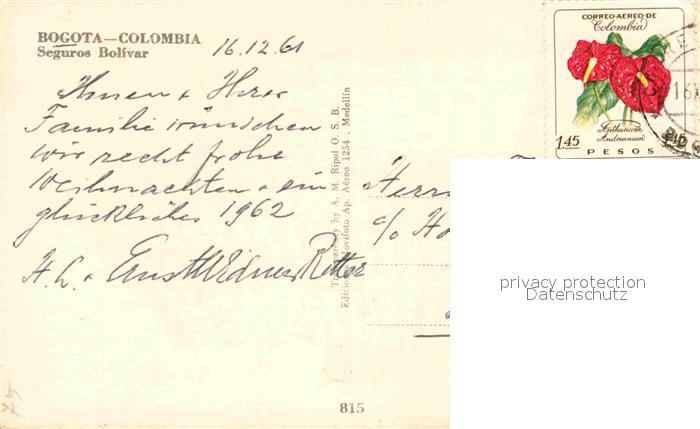 BOGOTA—COLOMBIA
Seguros Bolívar
16.12.61
Ihnen + Ihrer
Familie wünschen
wir recht frohe
Weihnachten + ein
glückliches 1962
H. L. + Ernst Ritter
Transparency by A. M. Ripol O. S. B.
Ediciones Movifoto Ap. Aéreo 1254 . Medellín
815
CORREO-AEREO-DE
Colombia
Anthurium
Andreanum
1.45
1.45
PESOS
Herrn
c/o Ho
privacy protection
Datenschutz